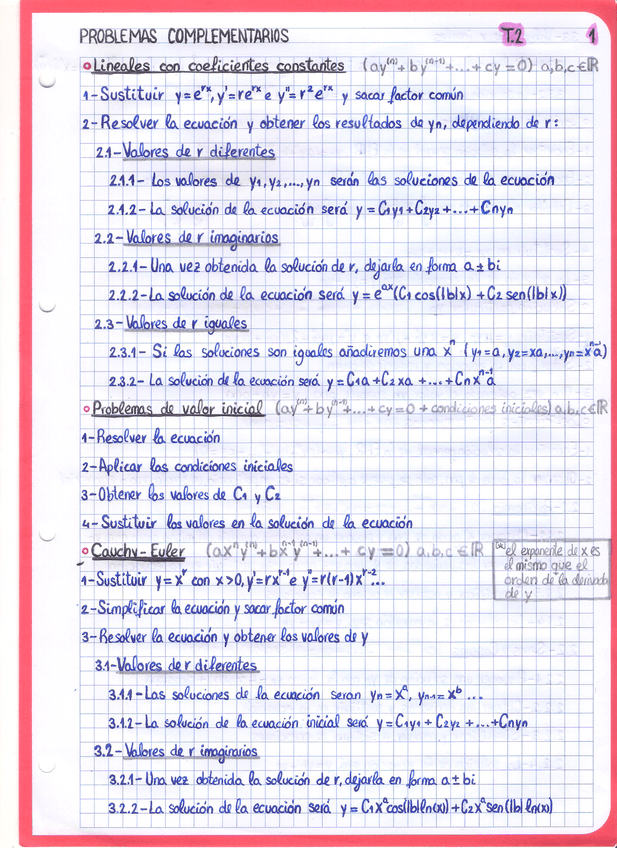 PROBLEMAS COMPLEMENTARIOS T.2 1
Lineales con coeficientes constantes (ay⁽ⁿ⁾+by⁽ⁿ⁻¹⁾+...+cy=0) a,b,c∈ℝ
1-Sustituir y=e^rx, y'=re^rx e y''=r²e^rx y sacar factor común
2-Resolver la ecuación y obtener los resultados de yn, dependiendo de r:
2.1-Valores de r diferentes
2.1.1- Los valores de y1,y2,...,yn serán las soluciones de la ecuación
2.1.2-La solución de la ecuación será y=C1y1+C2y2+...+Cnyn
2.2-Valores de r imaginarios
2.2.1-Una vez obtenida la solución de r, dejarla en forma a±bi
2.2.2-La solución de la ecuación será y=e^ax(C1 cos(|b|x)+C2 sen(|b|x))
2.3-Valores de r iguales
2.3.1- Si las soluciones son iguales añadiremos una xⁿ (y1=a, y2=xa,...,yn=xⁿ⁻¹a)
2.3.2- La solución de la ecuación será y=C1a+C2xa+...+Cnxⁿ⁻¹a
Problemas de valor inicial (ay⁽ⁿ⁾+by⁽ⁿ⁻¹⁾+...+cy=0+condiciones iniciales) a,b,c∈ℝ
1-Resolver la ecuación
2-Aplicar las condiciones iniciales
3-Obtener los valores de C1 y C2
4-Sustituir los valores en la solución de la ecuación
Cauchy-Euler (axⁿy⁽ⁿ⁾+bxⁿ⁻¹y⁽ⁿ⁻¹⁾+...+cy=0) a,b,c∈ℝ
el exponente de x es
el mismo que el
orden de la derivada
de y
1-Sustituir y=x^r con x>0, y'=rx^r-1 e y''=r(r-1)x^r-2...
2-Simplificar la ecuación y sacar factor común
3-Resolver la ecuación y obtener los valores de y
3.1-Valores de r diferentes
3.1.1-Las soluciones de la ecuación seran yn=x^a, yn-1=x^b...
3.1.2-La solución de la ecuación inicial será y=C1y1+C2y2+...+Cnyn
3.2-Valores de r imaginarios
3.2.1-Una vez obtenida la solución de r, dejarla en forma a±bi
3.2.2-La solución de la ecuación será y=C1x^a cos(|b|ln(x))+C2x^a sen(|b|ln(x))